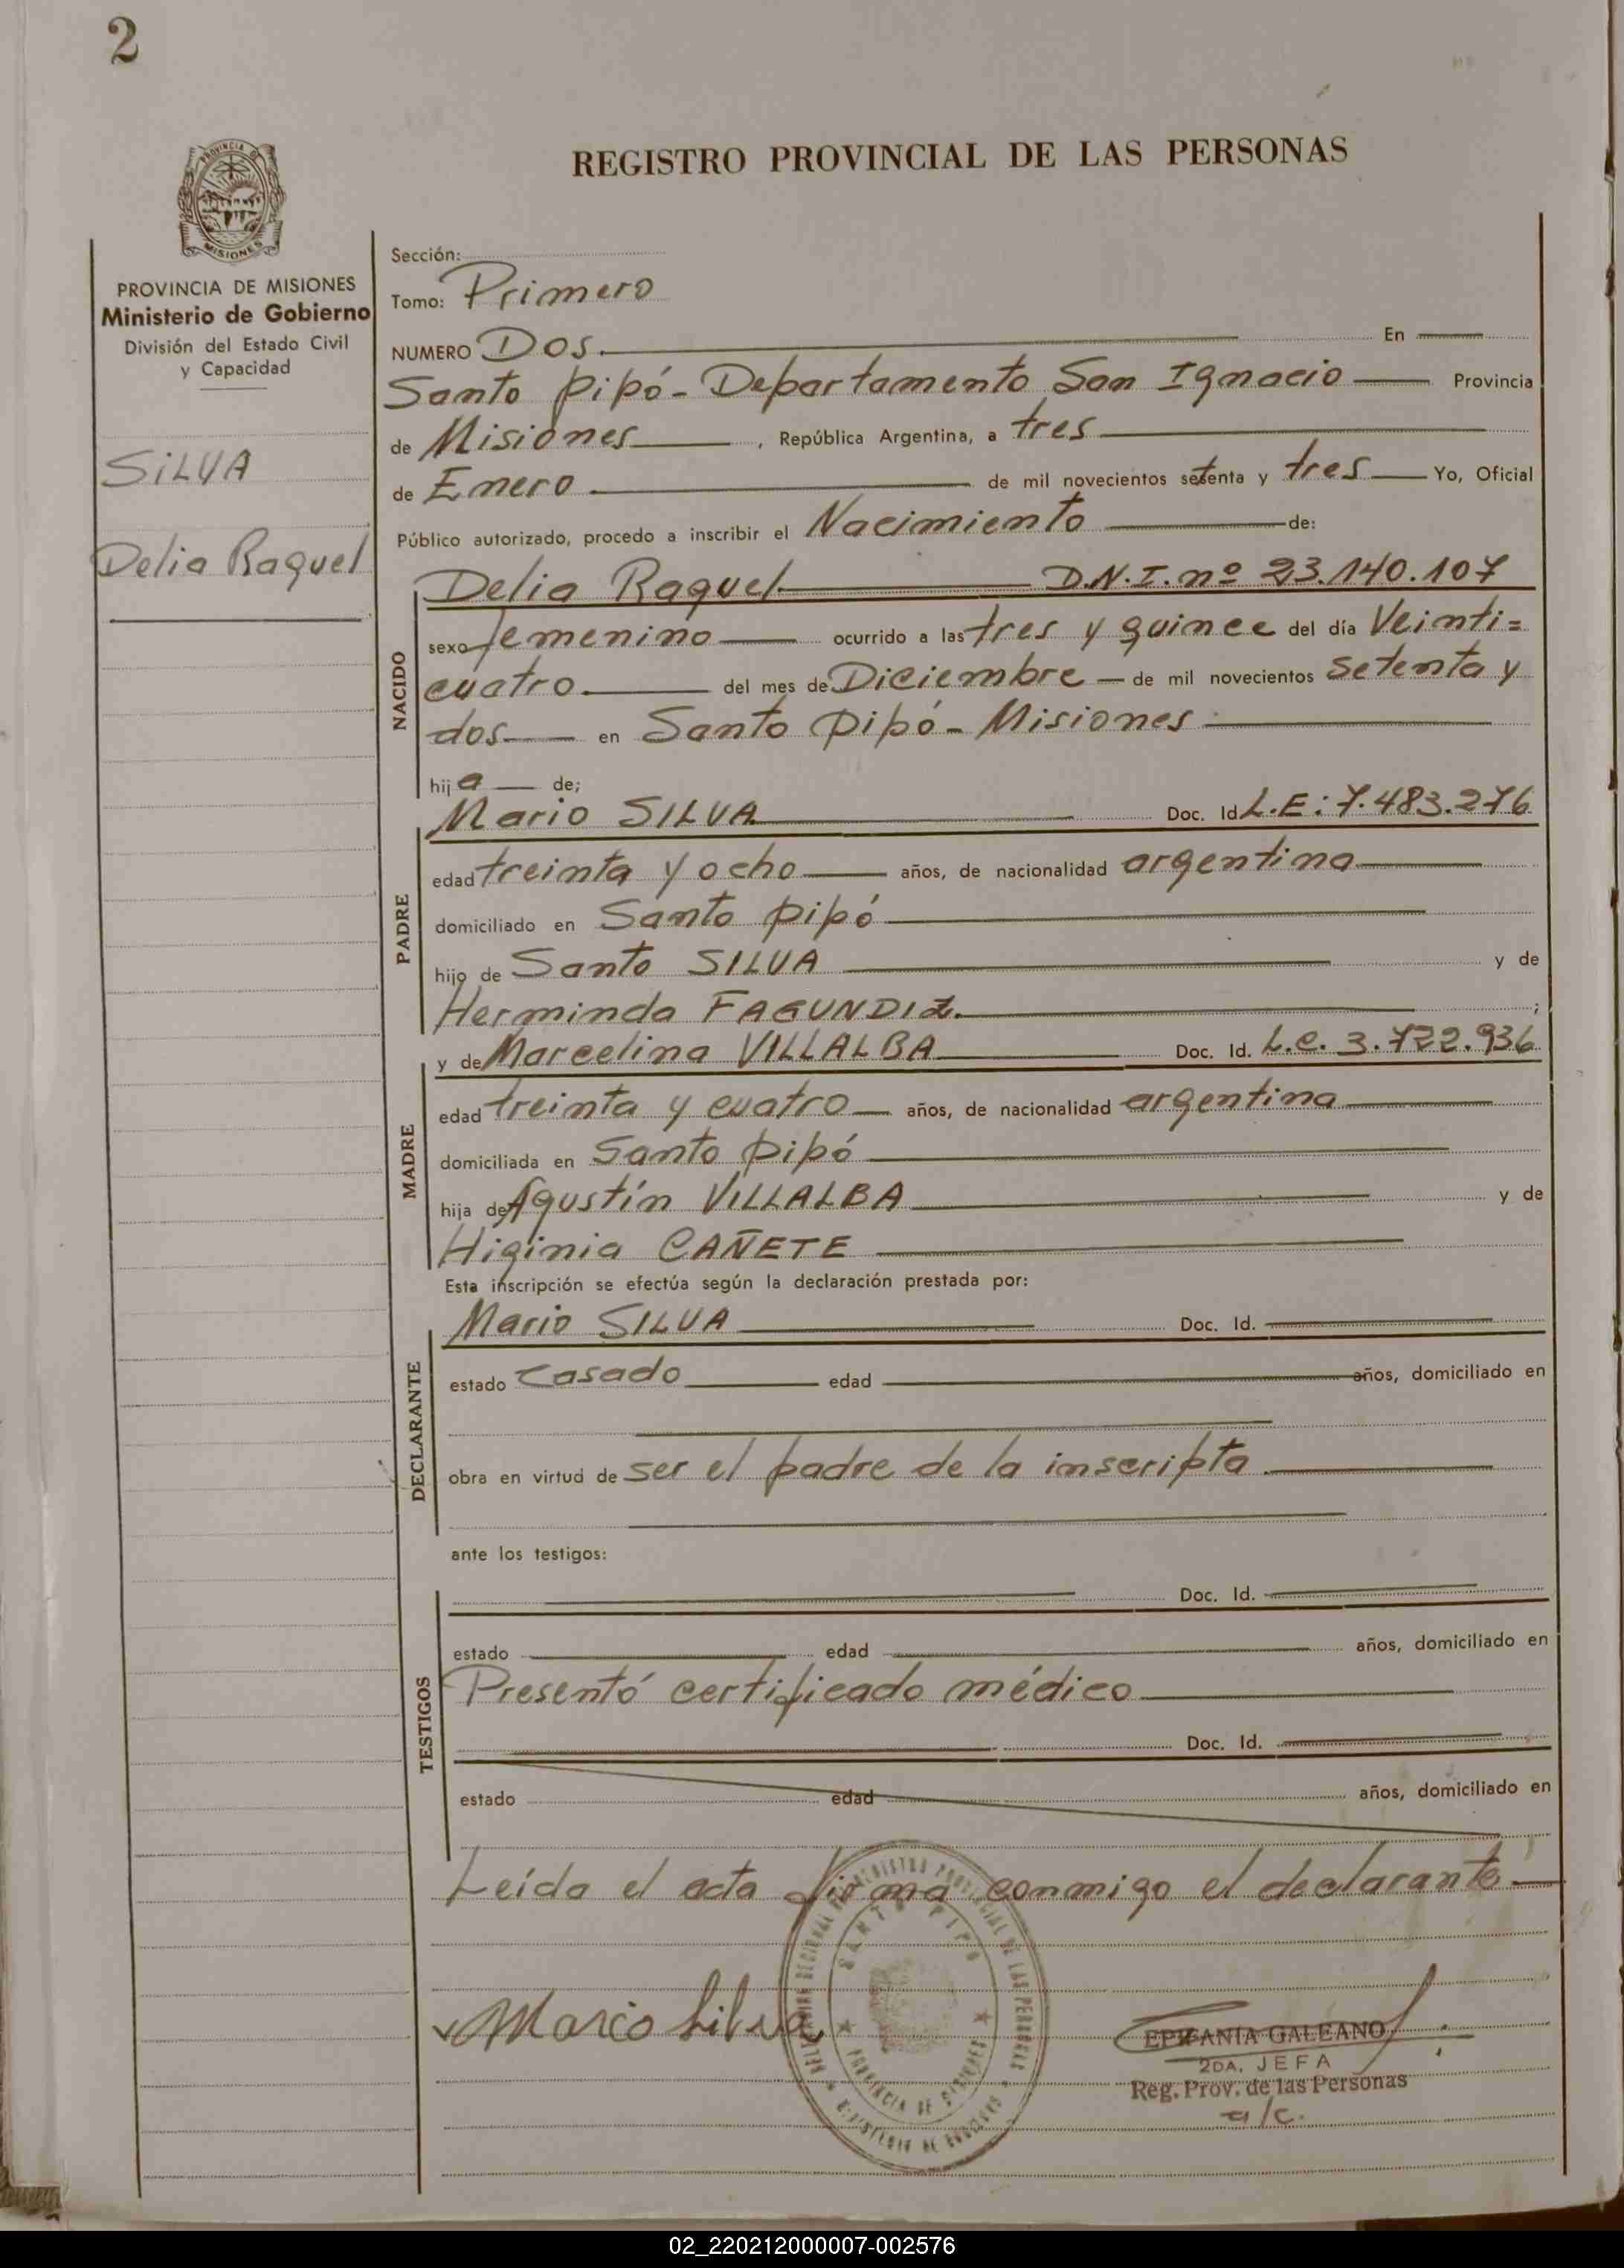 2
REGISTRO PROVINCIAL DE LAS PERSONAS
PROVINCIA DE MISIONES
Ministerio de Gobierno
División del Estado Civil
y Capacidad
SILVA
Delia Raquel
Sección:
Tomo: Primero
NUMERO Dos. En
Santo Pipó - Departamento San Ignacio Provincia
de Misiones, República Argentina, a tres
de Enero de mil novecientos setenta y tres Yo, Oficial
Público autorizado, procedo a inscribir el Nacimiento de:
Delia Raquel D.N.I. nº 23.140.107
NACIDO
sexo femenino ocurrido a las tres y quince del día Veinti=
cuatro. del mes de Diciembre de mil novecientos setenta y
dos en Santo Pipó - Misiones
hija de;
Mario SILVA Doc. Id L.E: 7.483.276
PADRE
edad treinta y ocho años, de nacionalidad argentina
domiciliado en Santo Pipó
hijo de Santo SILVA y de
Herminda FAGUNDIZ. ;
y de Marcelina VILLALBA Doc. Id. L.C. 3.722.936
MADRE
edad treinta y cuatro años, de nacionalidad argentina
domiciliada en Santo Pipó
hija de Agustín VILLALBA y de
Higinia CAÑETE
Esta inscripción se efectúa según la declaración prestada por:
Mario SILVA Doc. Id.
DECLARANTE
estado Casado edad años, domiciliado en
obra en virtud de ser el padre de la inscripta
ante los testigos:
Doc. Id.
TESTIGOS
estado edad años, domiciliado en
Presentó certificado médico
Doc. Id.
estado edad años, domiciliado en
Leída el acta firma conmigo el declarante
Mario Silva
EPIFANIA GALEANO
2DA. JEFA
Reg. Prov. de las Personas
a/c.
02_220212000007-002576